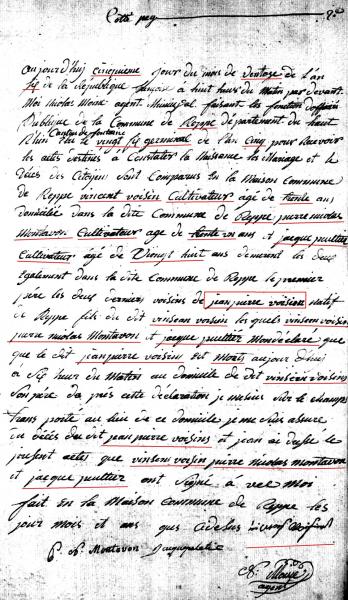 Cotté pag
aujourd'hui cinquieme jour du mois de ventose de l'an
six de la République française a huit heurs du Matin par devant
Moi nicolas Moine agent Municipal faisant les fonction d'officier
Publique de la Commune de Reppe departement du haut
Rhin Canton de fontaine le vingt six germinal de l'an Cinq pour Recevoir
les actes destinés a Constater la Naissance la Mariage et le
Deces des Citoyen sont Comparus En la Maison Commune
de Reppe vincent voisin Cultivateur agé de trente ans
domicilié dans la dite Commune de Reppe pierre nicolas
Montavon Cultivateur age de trente ans et jacque peultier
Cultivateur agé de Vingt huit ans demeurant les deux
Egalement dans la dite Commune de Reppe le premier
pére les deux dernier voisins de jean pierre voision natif
de Reppe fils du dit vinsean voisins les quels vinseen voisins
pierre nicolas Montavon et jacque peultier Mon déclaré que
que le dit jean pierre voisin est Morts aujour d'hui
a six heur du Matin au domicile du dit vinseen voisins
son pére da prés cette déclaration je me suis sur le champs
trans porté au lieu de ce domicile je me suis assuré
du décés du dit jean pierre voisins et jean ai dressé le
present actes que vinseen voisin pierre nicolas montavon
et jacque peultier ont signé a vec moi
fait En la Maison Commune de Reppe les
jour mois et ans que ci desus
P. N. Montavon
N. Moine
agent